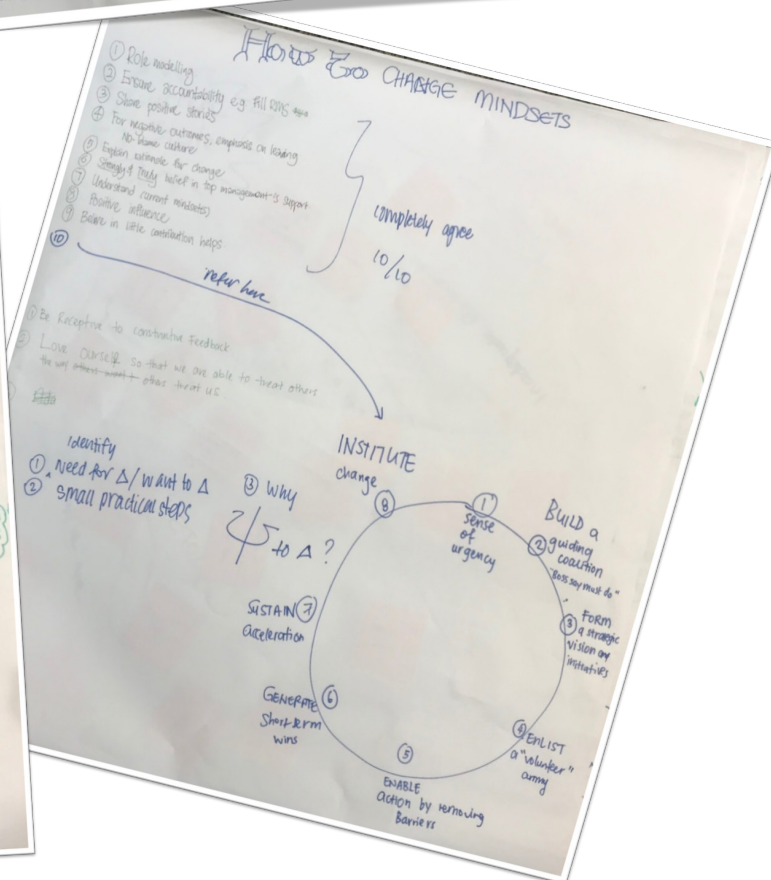 How To CHANGE MINDSETS
① Role modelling
② Ensure accountability e.g. Fill RMS
③ Share positive stories
④ For negative outcomes, emphasis on learning
No-blame culture
⑤ Explain rationale for change
⑥ Strongly & truly belief in top management's support
⑦ Understand current mindset(s)
⑧ Positive influence
⑨ Believe in little contribution helps
⑩
completely agree
10/10
refer here
① Be Receptive to constructive Feedback
② Love ourself so that we are able to treat others
the way others want + others treat us
Identify
① Need for Δ / want to Δ
② Small practical steps
③ Why
Ψ to Δ ?
INSTITUTE
change
⑧
①
sense
of
urgency
BUILD a
② guiding
coalition
"Boss say must do"
③ FORM
a strategic
vision and
initiatives
④ ENLIST
a "volunteer"
army
⑤
ENABLE
action by removing
Barriers
GENERATE ⑥
Short term
wins
SUSTAIN ⑦
acceleration